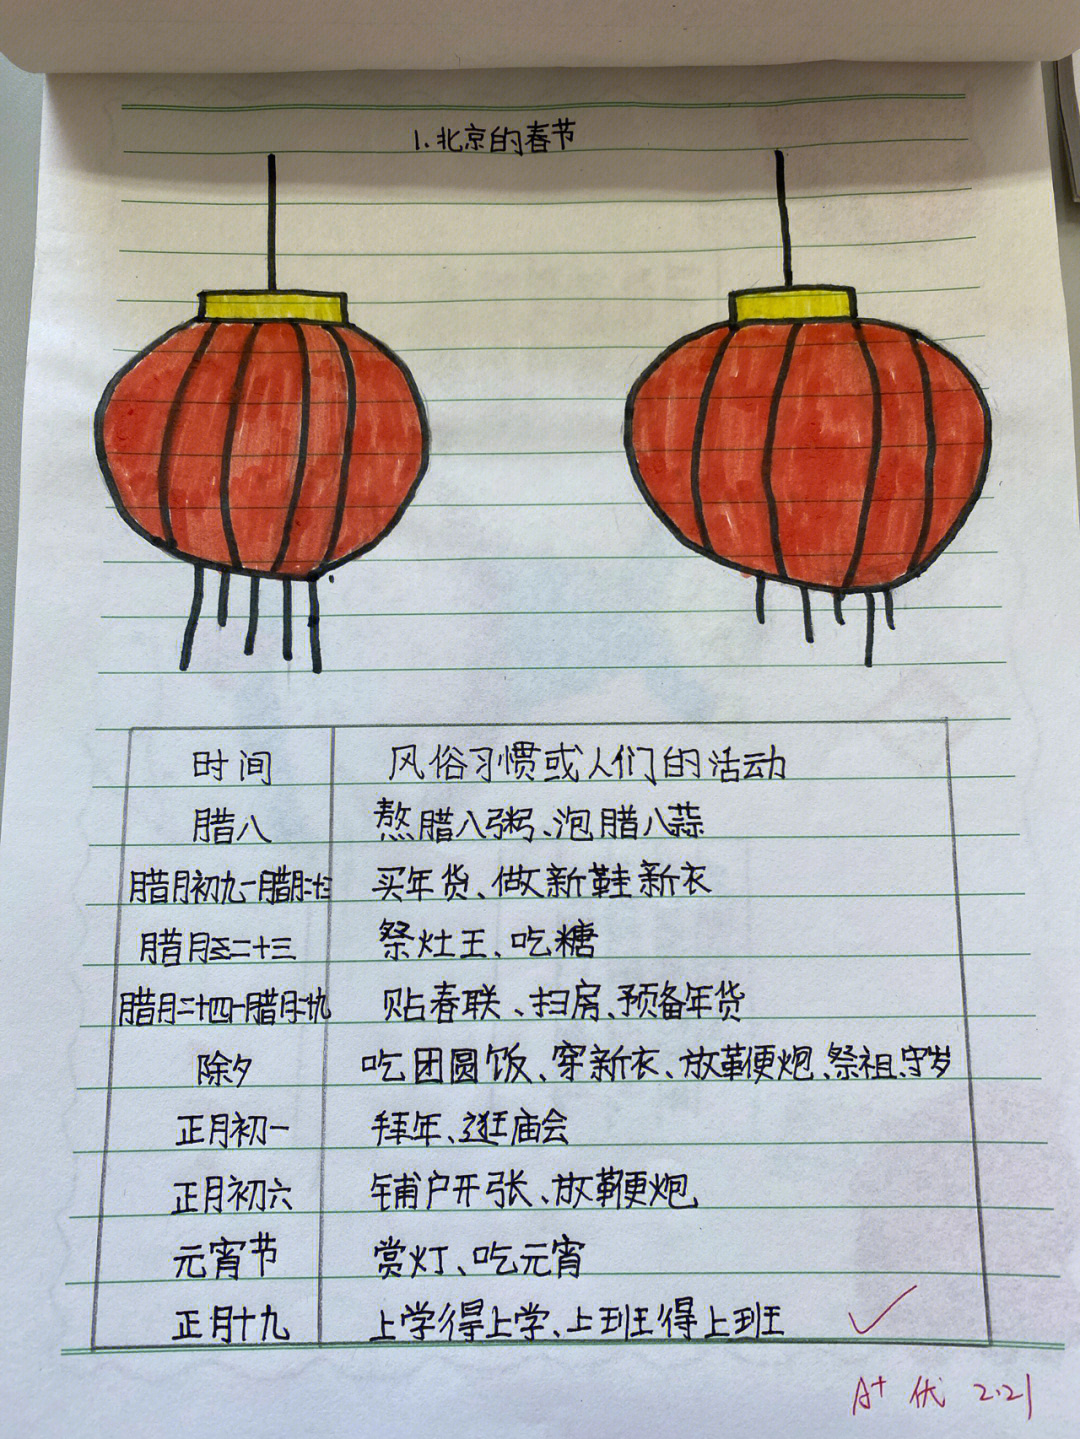 1.北京的春节
时间 风俗习惯或人们的活动
腊八 熬腊八粥、泡腊八蒜
腊月初九一腊月二十三 买年货、做新鞋新衣
腊月二十三 祭灶王、吃糖
腊月二十四一腊月二十九 贴春联、扫房、预备年货
除夕 吃团圆饭、穿新衣、放鞭炮、祭祖、守岁
正月初一 拜年、逛庙会
正月初六 铺户开张、放鞭炮
元宵节 赏灯、吃元宵
正月十九 上学得上学、上班得上班
A+ 优 2.21